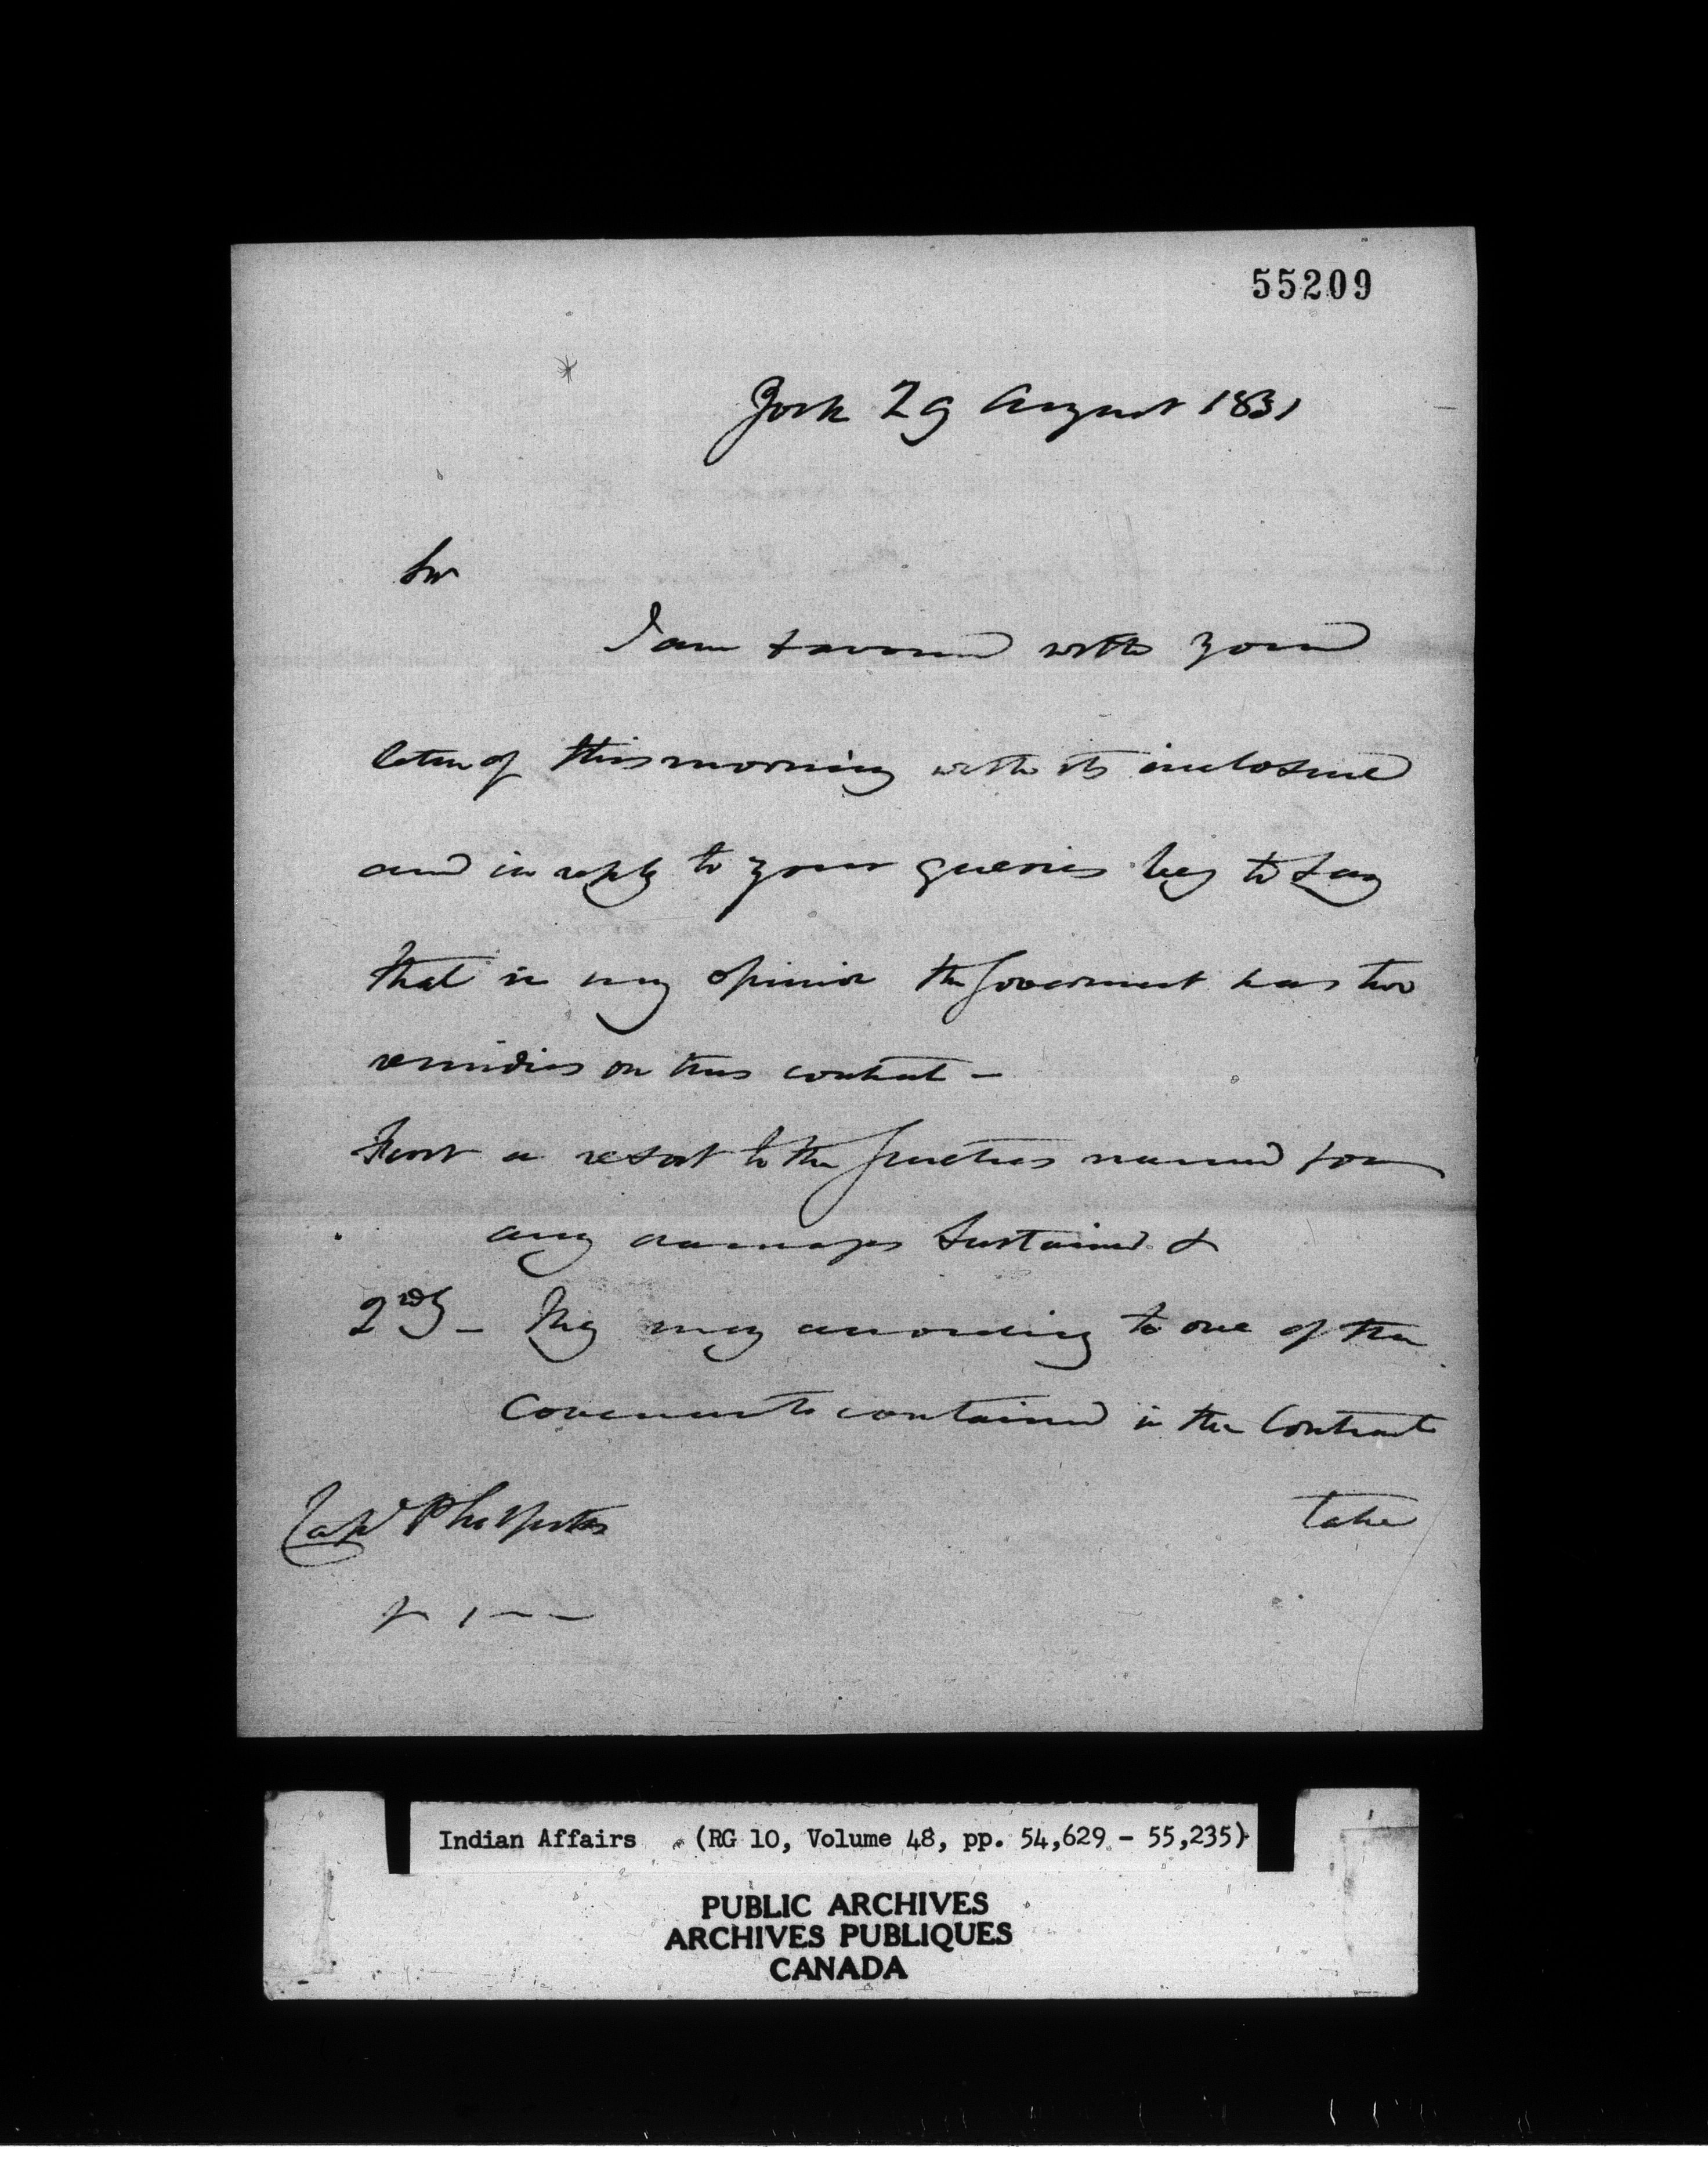 55209
York 29 August 1831
Sir
I am favoured with your
letter of this morning with its inclosure
and in reply to your queries beg to say
that in my opinion the Government has two
remidies on this contract –
First a resort to the sureties named for
any damages sustained &
2ndly – They may according to one of the
Covenants contained in the Contract
take
Capt Phillpotts
Indian Affairs (RG 10, Volume 48, pp. 54,629 - 55,235)
PUBLIC ARCHIVES
ARCHIVES PUBLIQUES
CANADA